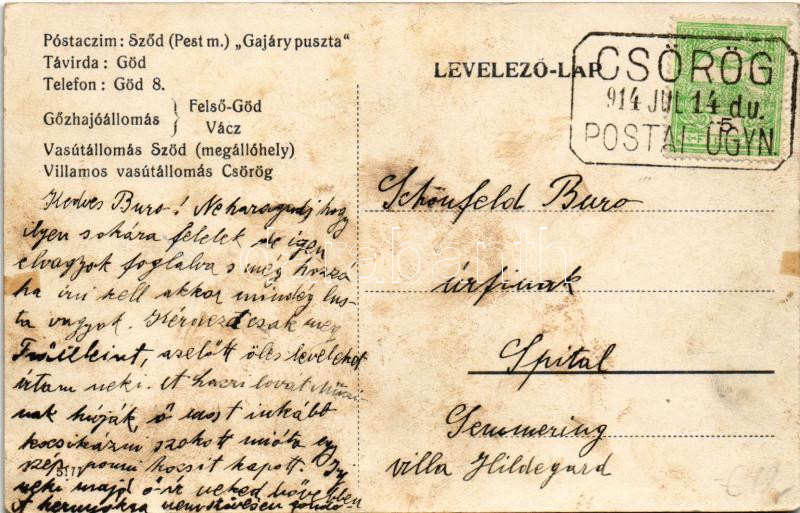 Póstaczim: Sződ (Pest m.) „Gajáry puszta"
Távirda: Göd
Telefon: Göd 8.
Gőzhajóallomás } Felső-Göd
Vácz
Vasútállomás Sződ (megállóhely)
Villamos vasútállomás Csörög
LEVELEZŐ-LAP
CSÖRÖG
914 JUL 14 du.
5
POSTAI ÜGYN
Kedves Buro! Ne haragudj hogy
ilyen sokára felelek de igen
elvagyok foglalva s még hozzá
ha írni kell akkor mindég lus-
ta vagyok. Kérdezd csak meg
Fräuleint, azelőtt öles leveleket
írtam neki. A hazrilovat
nak hívják, ő most inkább
kocsikázni szokott mióta egy
szép ponni kocsit kapott. Írj
neki majd ő ír neked bővebben
A
Schönfeld Buro
úrfinak
Spital
Semmering
villa Hildegard
darabanth